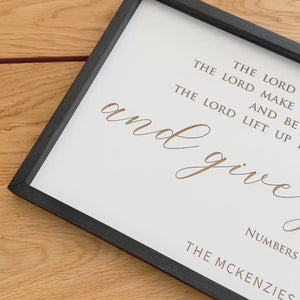 THE LORD
THE LORD MAKE
AND BE
THE LORD LIFT UP
and give
NUMBERS
THE MCKENZIES